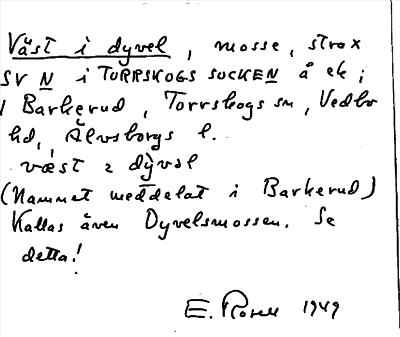 Väst i dyvel, mosse, strax
SV N i TORRSKOGS SOCKEN å ek;
i Barkerud, Torrskogs sn, Vedbo
hd, Älvsborgs l.
væst i dỳvəl
(Namnet meddelat i Barkerud)
Kallas även Dyvelsmossen. Se
detta!
E. Rosell 1949